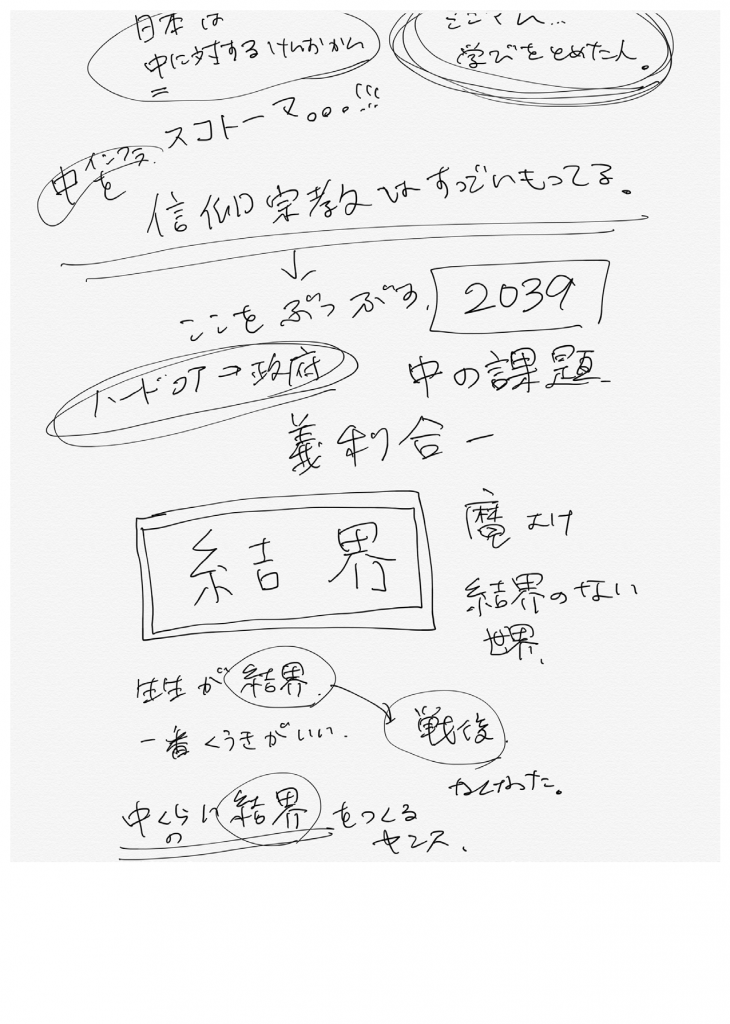 日本は
中に対するけんおかん
=
学びをとめた人。
スコトーマ。。。!!!
インフラ
中を
信仰宗教はすっごいもってる。
↓
ここをぶっつぶす.
2039
→政府
中の課題
義利合一
結界
魔よけ
結界のない
世界.
が結界.
一番くうきがいい.
戦後.
なくなった。
中くらいの結界をつくる
センス.